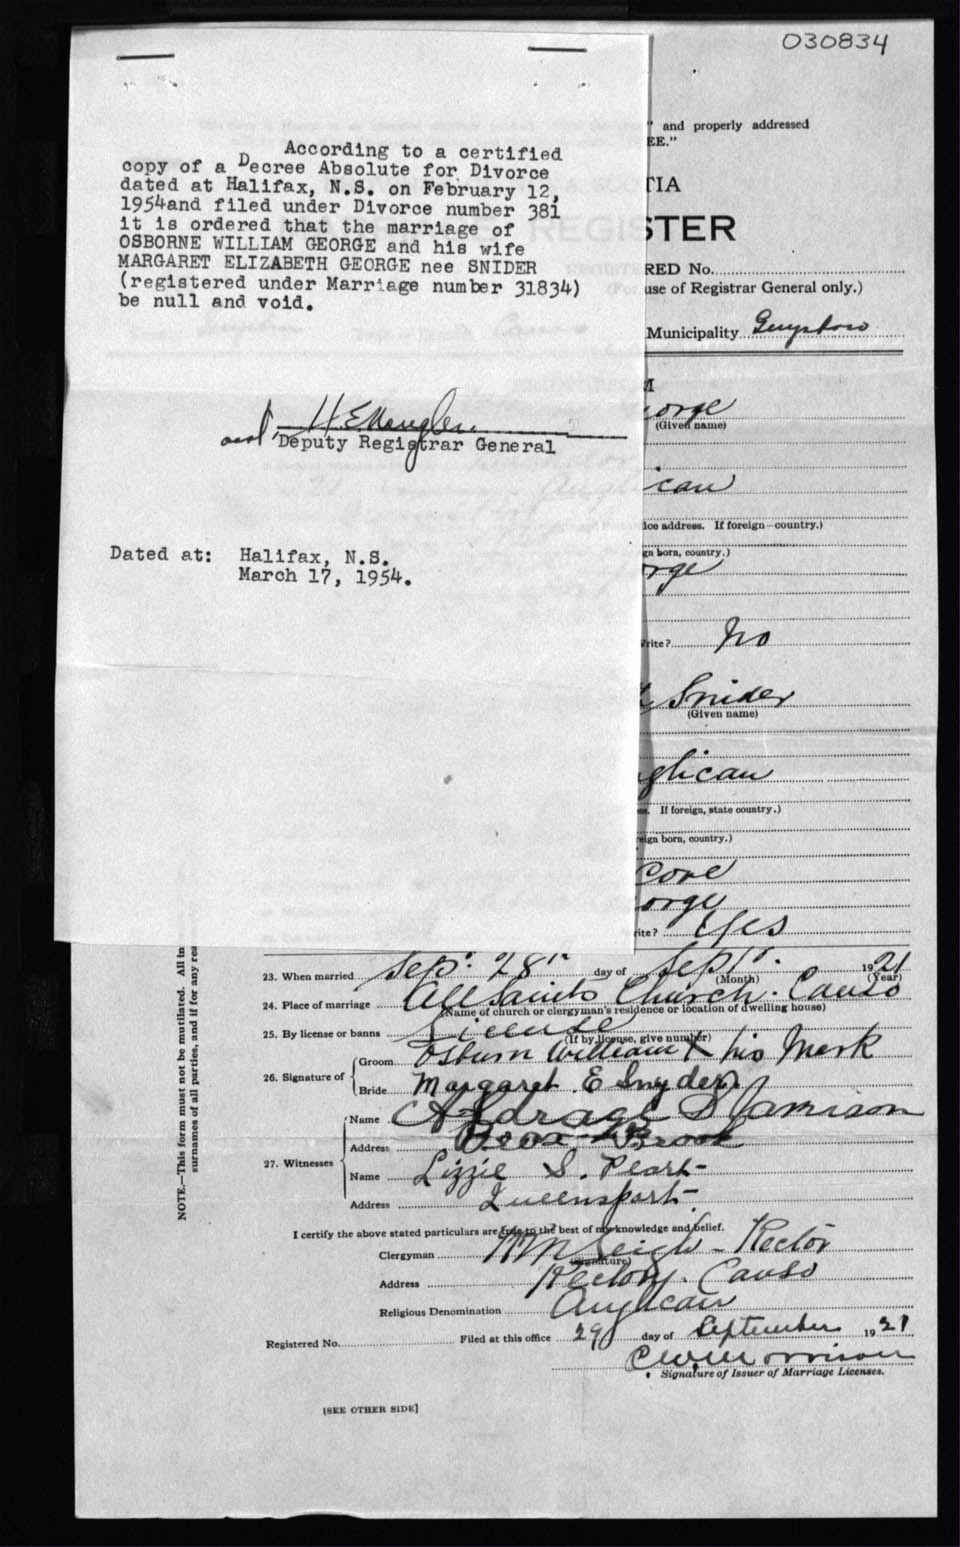 030834
According to a certified
copy of a Decree Absolute for Divorce
dated at Halifax, N.S. on February 12,
1954and filed under Divorce number 381
it is ordered that the marriage of
OSBORNE WILLIAM GEORGE and his wife
MARGARET ELIZABETH GEORGE nee SNIDER
(registered under Marriage number 31834)
be null and void.
Deputy Registrar General
Dated at: Halifax, N.S.
March 17, 1954.
" and properly addressed
EE."
TIA
STER
RED No.
use of Registrar General only.)
Municipality Guysboro
M
orge
(Given name)
ican
ice address. If foreign—country.)
gn born, country.)
orge
Write? No
Snider
(Given name)
glican
ss. If foreign, state country.)
eign born, country.)
Cove
orge
rite? Yes
NOTE.—This form must not be mutilated. All in
surnames of all parties, and if for any rea
23. When married Sep. 28th day of Sept. 1921
(Month) (Year)
24. Place of marriage All Saints Church. Canso
(Name of church or clergyman's residence or location of dwelling house)
25. By license or banns License
(If by license, give number)
26. Signature of
Groom Osburn William X his Mark
Bride Margaret E Snyder
27. Witnesses
Name Jamison
Address Brook
Name Lizzie S. Peart
Address Queensport
I certify the above stated particulars are true to the best of my knowledge and belief.
Clergyman Leigh - Rector
(Signature)
Address Rectory. Canso
Religious Denomination Anglican
Registered No. Filed at this office 29 day of September 1921
C W Morrison
Signature of Issuer of Marriage Licenses.
[SEE OTHER SIDE]